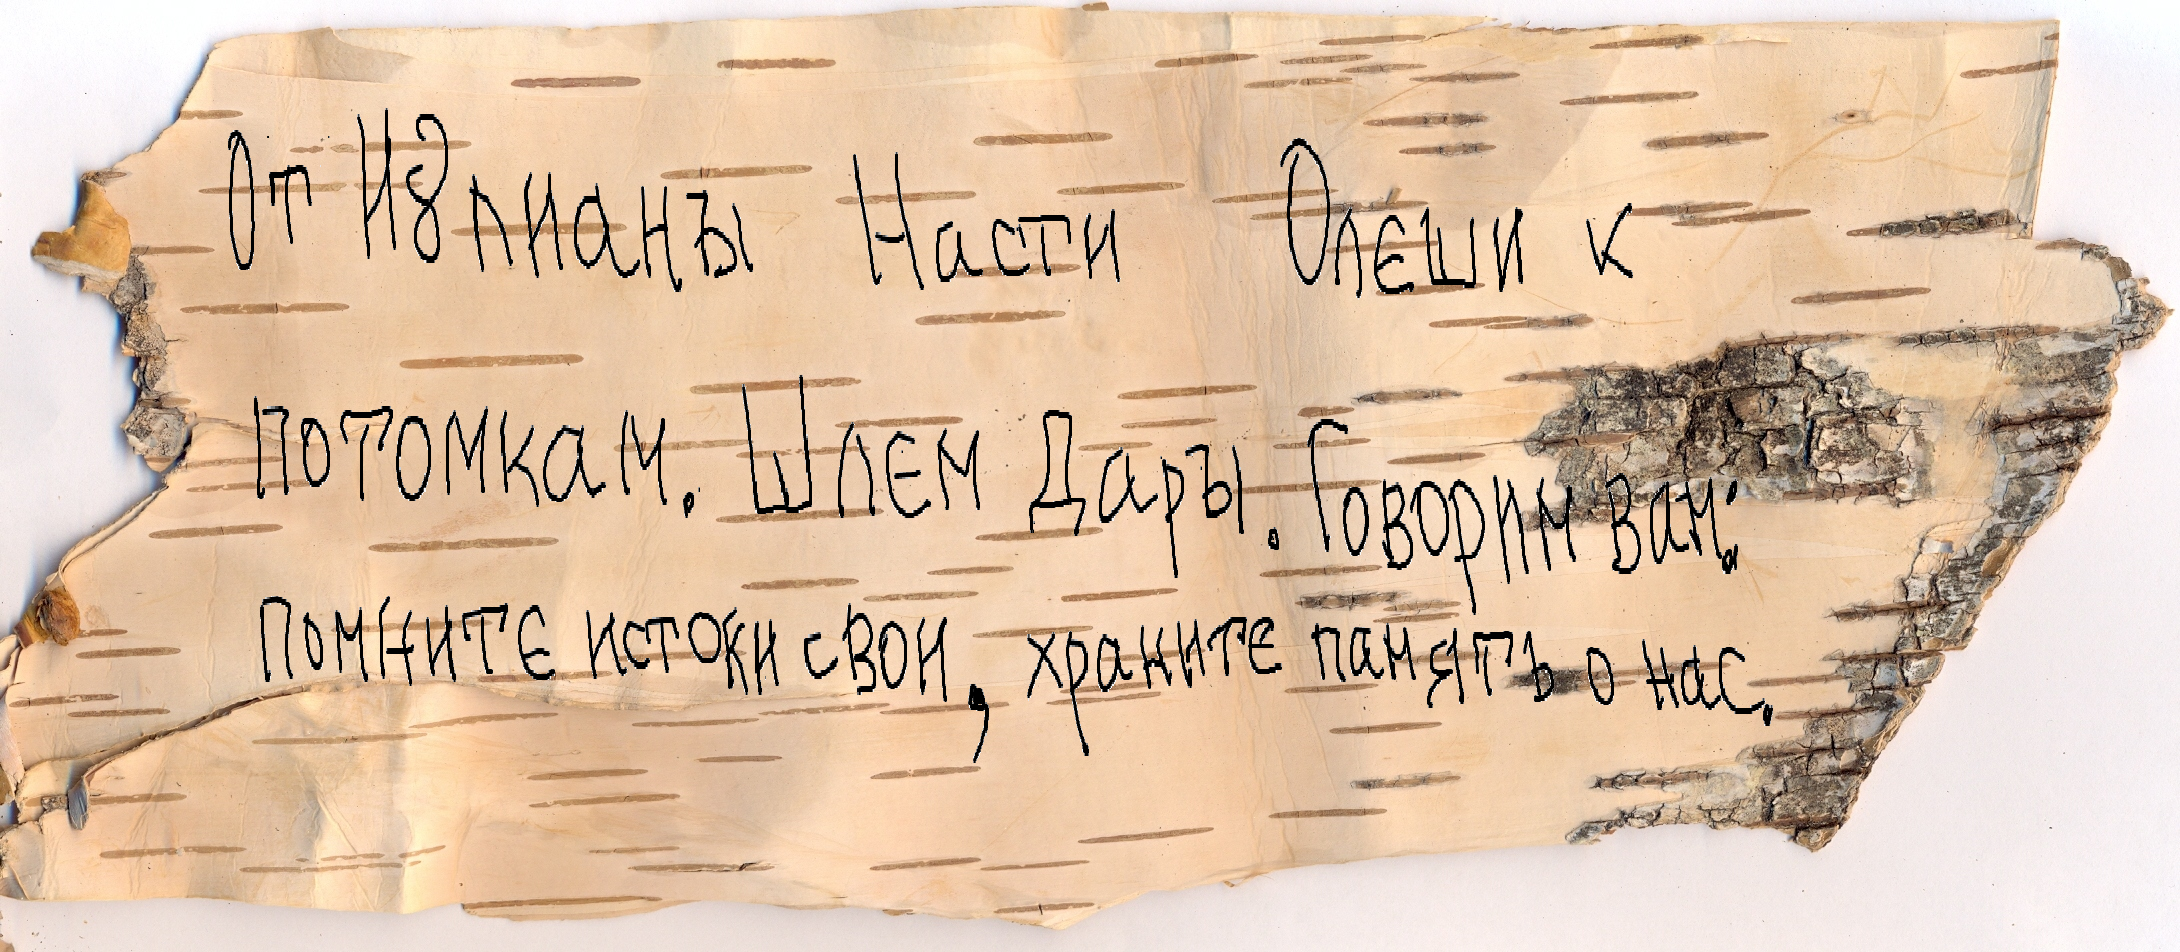 От Иꙋлианꙑ Насти Олєши к
потомкам. Шлєм Дарꙑ. Говорим вам:
помнитє истоки свои, хранитє память о нас.